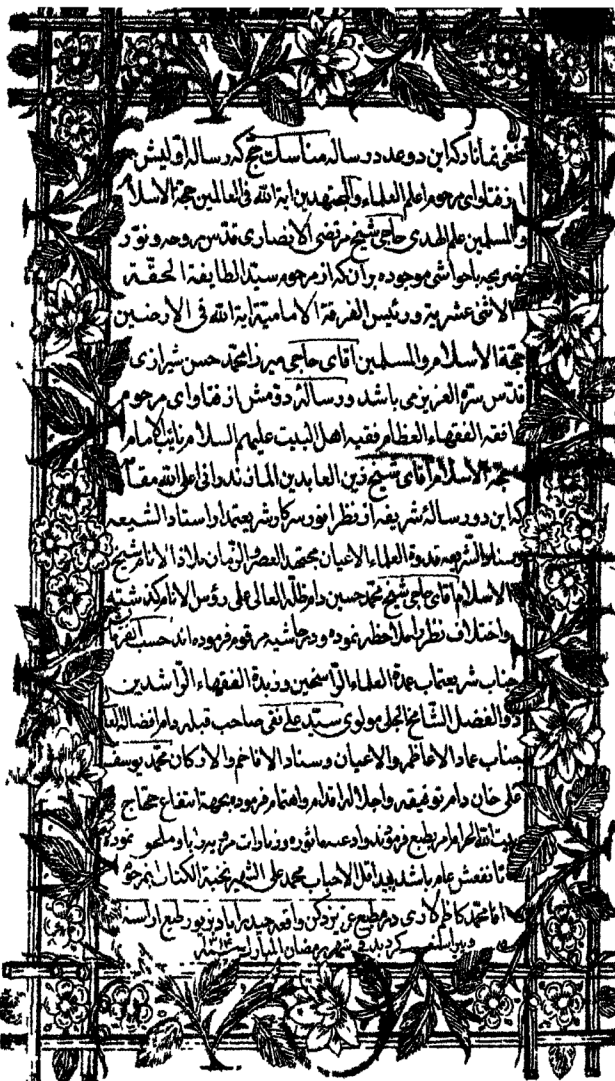 مخفی نماناد که این دو عدد رساله مناسک حج که رساله اولیش
از فتاوای مرحوم اعلم العلماء والمجتهدین آیة الله فی العالمین حجة الاسلام
والمسلمین علم الهدی حاجی شیخ مرتضی الانصاری قدس روحه و نور
ضریحه با حواشی موجوده بر آن که از مرحوم سید الطایفة الحقة
الاثنی عشریة و رئیس الفرقة الامامیة آیة الله فی الارضین
حجة الاسلام والمسلمین آقای حاجی میرزا محمد حسن شیرازی
قدس سره العزیز می باشد و رسالهٔ دومش از فتاوای مرحوم
افقه الفقهاء العظام فقیه اهل البیت علیهم السلام نایب الامام
حجة الاسلام آقای شیخ زین العابدین المازندرانی اعلی الله مقامه
که این دو رسالهٔ شریفه از نظر انور سرکار شریعتمدار استاد الشیعه
وسناد الشریعه قدوة العلماء الاعیان مجتهد العصر والزمان ملاذ الانام شیخ
الاسلام آقای حاجی شیخ محمد حسین دام ظله العالی علی رؤس الانام گذشته
واختلاف نظر را ملاحظه نموده و در حاشیه مرقوم فرموده اند حسب الفرمایش
جناب شریعتمآب عمدة العلماء الراسخین وزبدة الفقهاء الراشدین
ذوالفضل الشامخ الجلی مولوی سید علی نقی صاحب قبله دام افضاله
جناب عماد الاعاظم والاعیان وسناد الافاخم والارکان محمد یوسف
علی خان دام توفیقه واجلاله اقدام واهتمام فرموده بجهة انتفاع حجاج
بیت الله الحرام امر بطبع فرمودند وادعیه ماثوره وزیارات مرویه را با و ملحق نموده
تا نفعش عام باشد بید اقل الاحباب محمد علی الشهیر بنخبة الکتاب ابن مرحوم
آقا محمد کاظم لاری در مطبع عزیز دکن واقعه حیدراباد بزیور طبع اراسته
گردید فی شهر رمضان المبارک